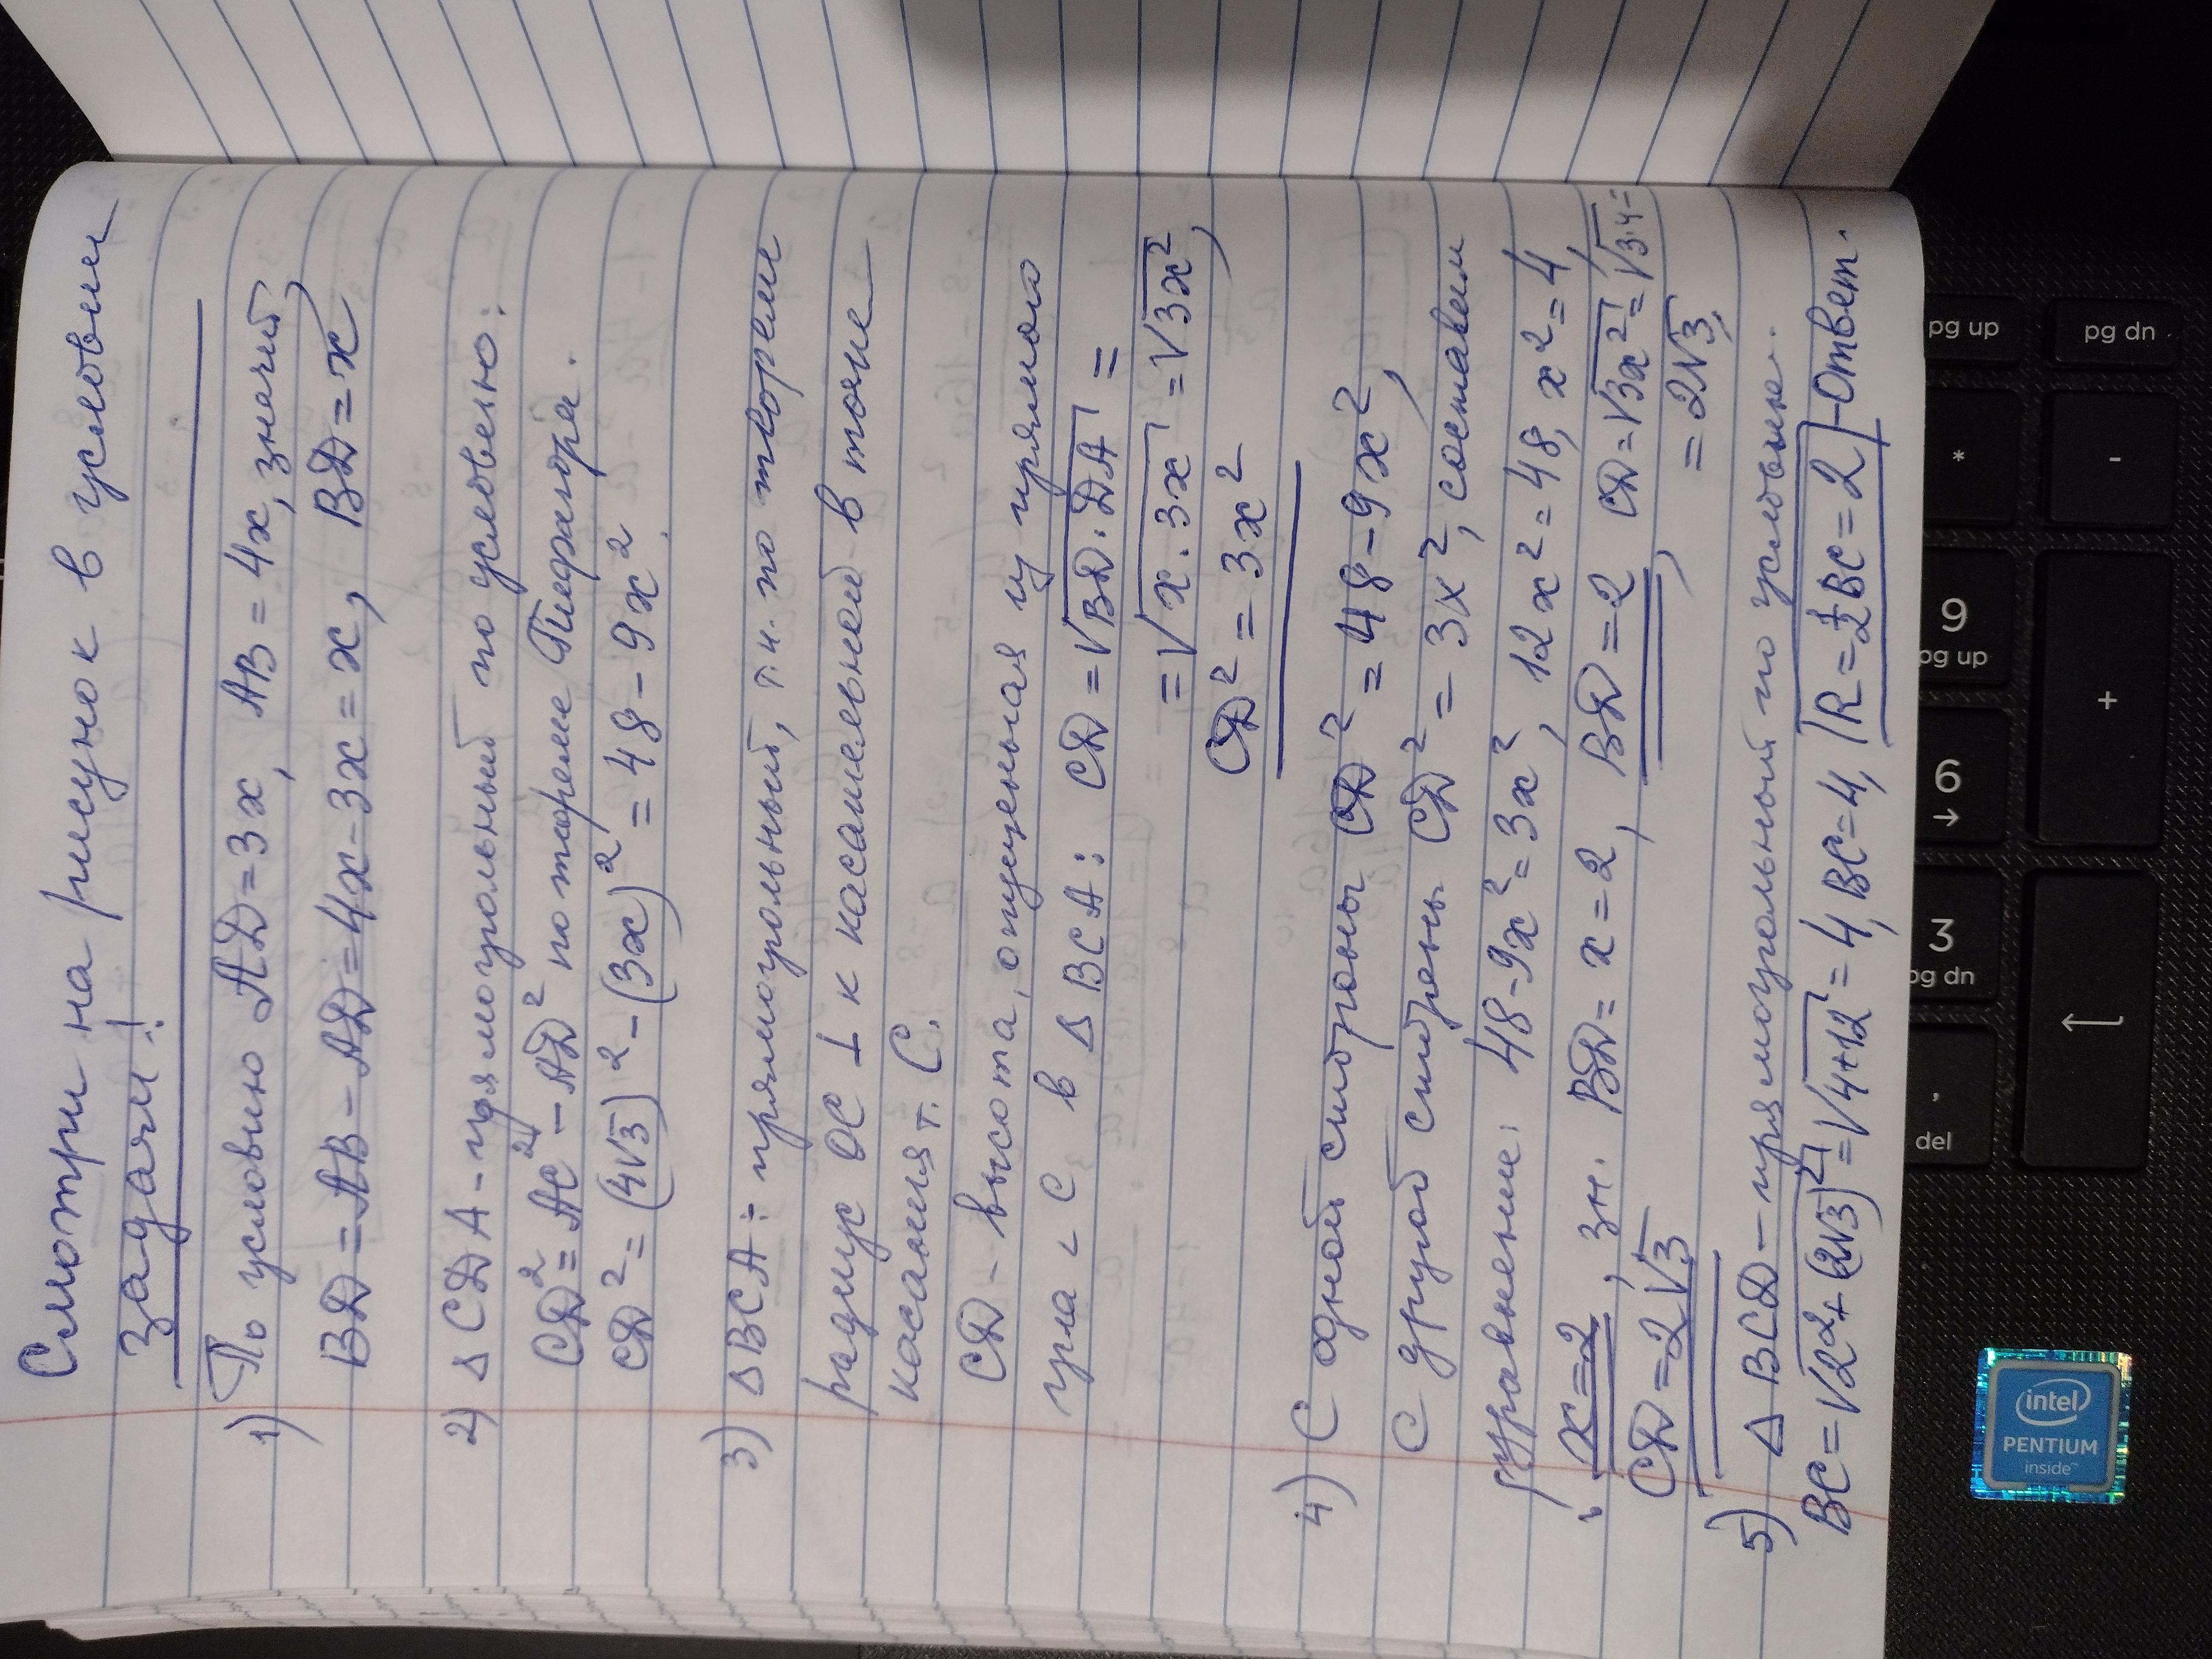 Смотри на рисунок в условии
задачи!
1) По условию AD=3x, AB=4x, значит,
BD=AB-AD=4x-3x=x, BD=x
2) △CDA-прямоугольный по условию:
CD²=AC²-AD² по теореме Пифагора.
CD²=(4√3)²-(3x)²=48-9x².
3) △BCA: прямоугольный, т.к. по теореме
радиус OC ⊥ к касательной в точке
касания т. C.
CD-высота, опущенная из прямого
угла <C в △BCA: CD=√BD·DA=
=√x·3x=√3x²,
CD²=3x²
4) С одной стороны CD²=48-9x²,
С другой стороны CD²=3x², составляем
уравнение: 48-9x²=3x², 12x²=48, x²=4,
x=2, зн. BD=x=2, BD=2, CD=√3x²=√3·4=
CD=2√3 =2√3,
5) △BCD-прямоугольный по условию.
BC=√2²+(2√3)²=√4+12=4, BC=4, R=½BC=2-Ответ.
pg up
pg dn
*
-
9
pg up
6
→
+
3
pg dn
.
del
intel
PENTIUM
inside™